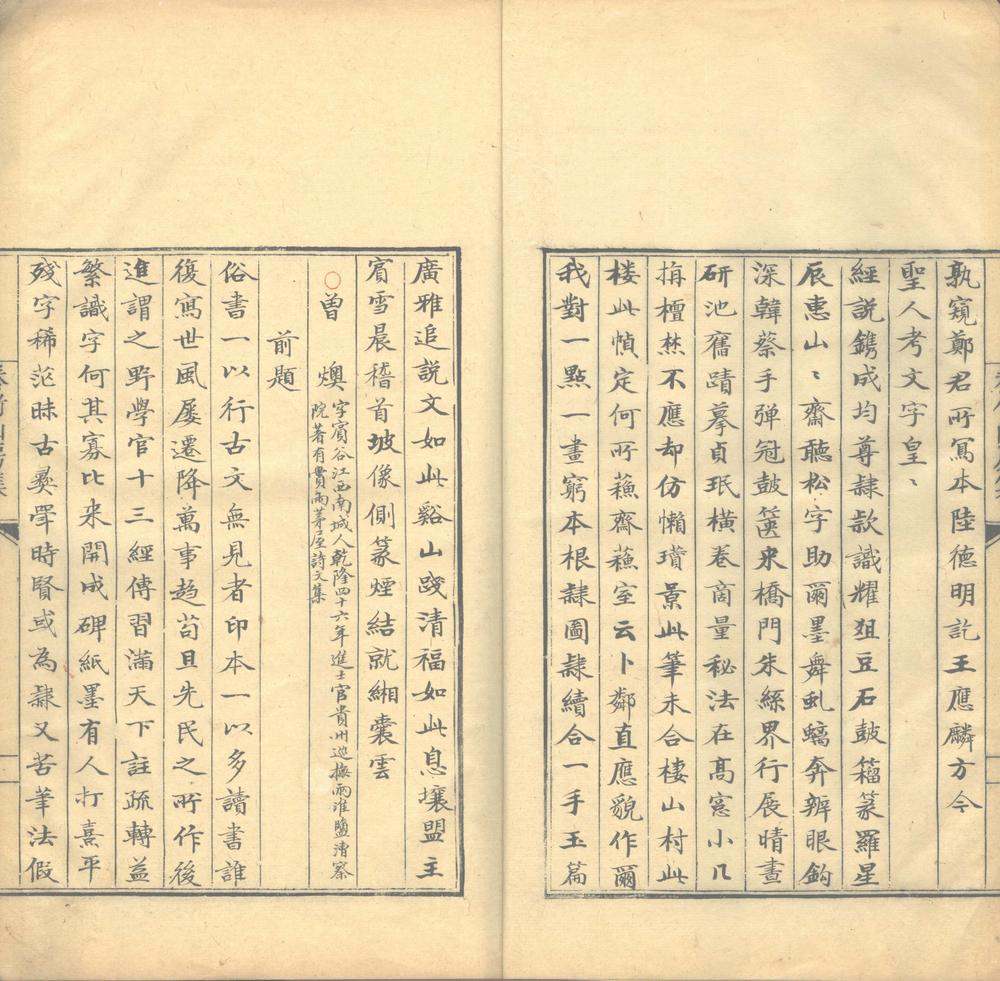 孰窺鄭君所寫本陸德明訖王應麟方今
聖人考文字皇〻
經說鐫成均尊隸欵識耀狙豆石鼓籀篆羅星
辰惠山〻齋聽松字助爾墨舞虬螭奔辨眼鈎
深韓蔡手彈冠鼓篋来橋門朱絲界行展晴晝
研池舊蹟摹貞珉橫卷商量秘法在高窓小几
掮檀㷊不應却仿懶瓚景此筆未合棲山村此
楼此幀定何所蘓齋蘓室云卜鄰直應貌作爾
我對一點一畫窮本根隸圖隸續合一手玉篇
廣雅追説文如此谿山踐清福如此息壤盟主
賔雪晨稽首坡像側篆煙結就緗囊雲
曾燠 字賔谷江西南城人乾隆四十六年進士官貴州巡撫兩淮鹽漕察
院著有賞雨茅屋詩文集
前題
俗書一以行古文無見者印本一以多讀書誰
復寫世風屡遷降萬事趋苟且先民之所作後
進謂之野學官十三經傳習滿天下註疏轉益
繁識字何其寡比来開成碑紙墨有人打熹平
殘字稀范昧古彝斝時賢或為隸又苦筆法假